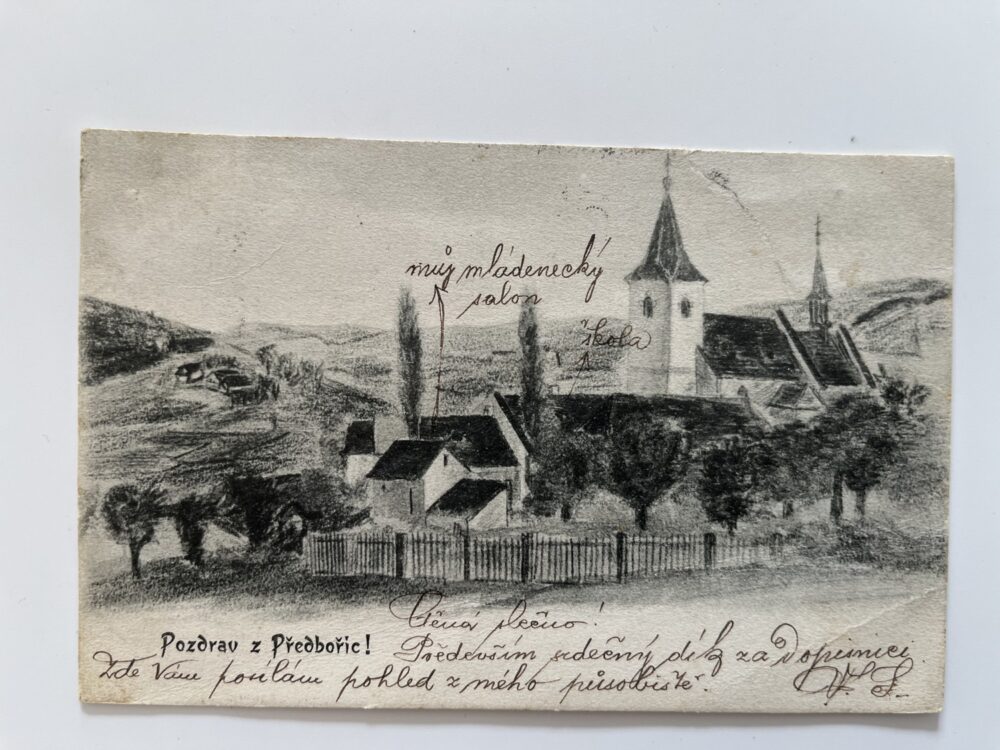 můj mládenecký
salon
škola
Ctěná slečno!
Pozdrav z Předbořic!
Především srdečný dík za Dopisnici.
Zde Vám posílám pohled z mého působiště.
V. S.